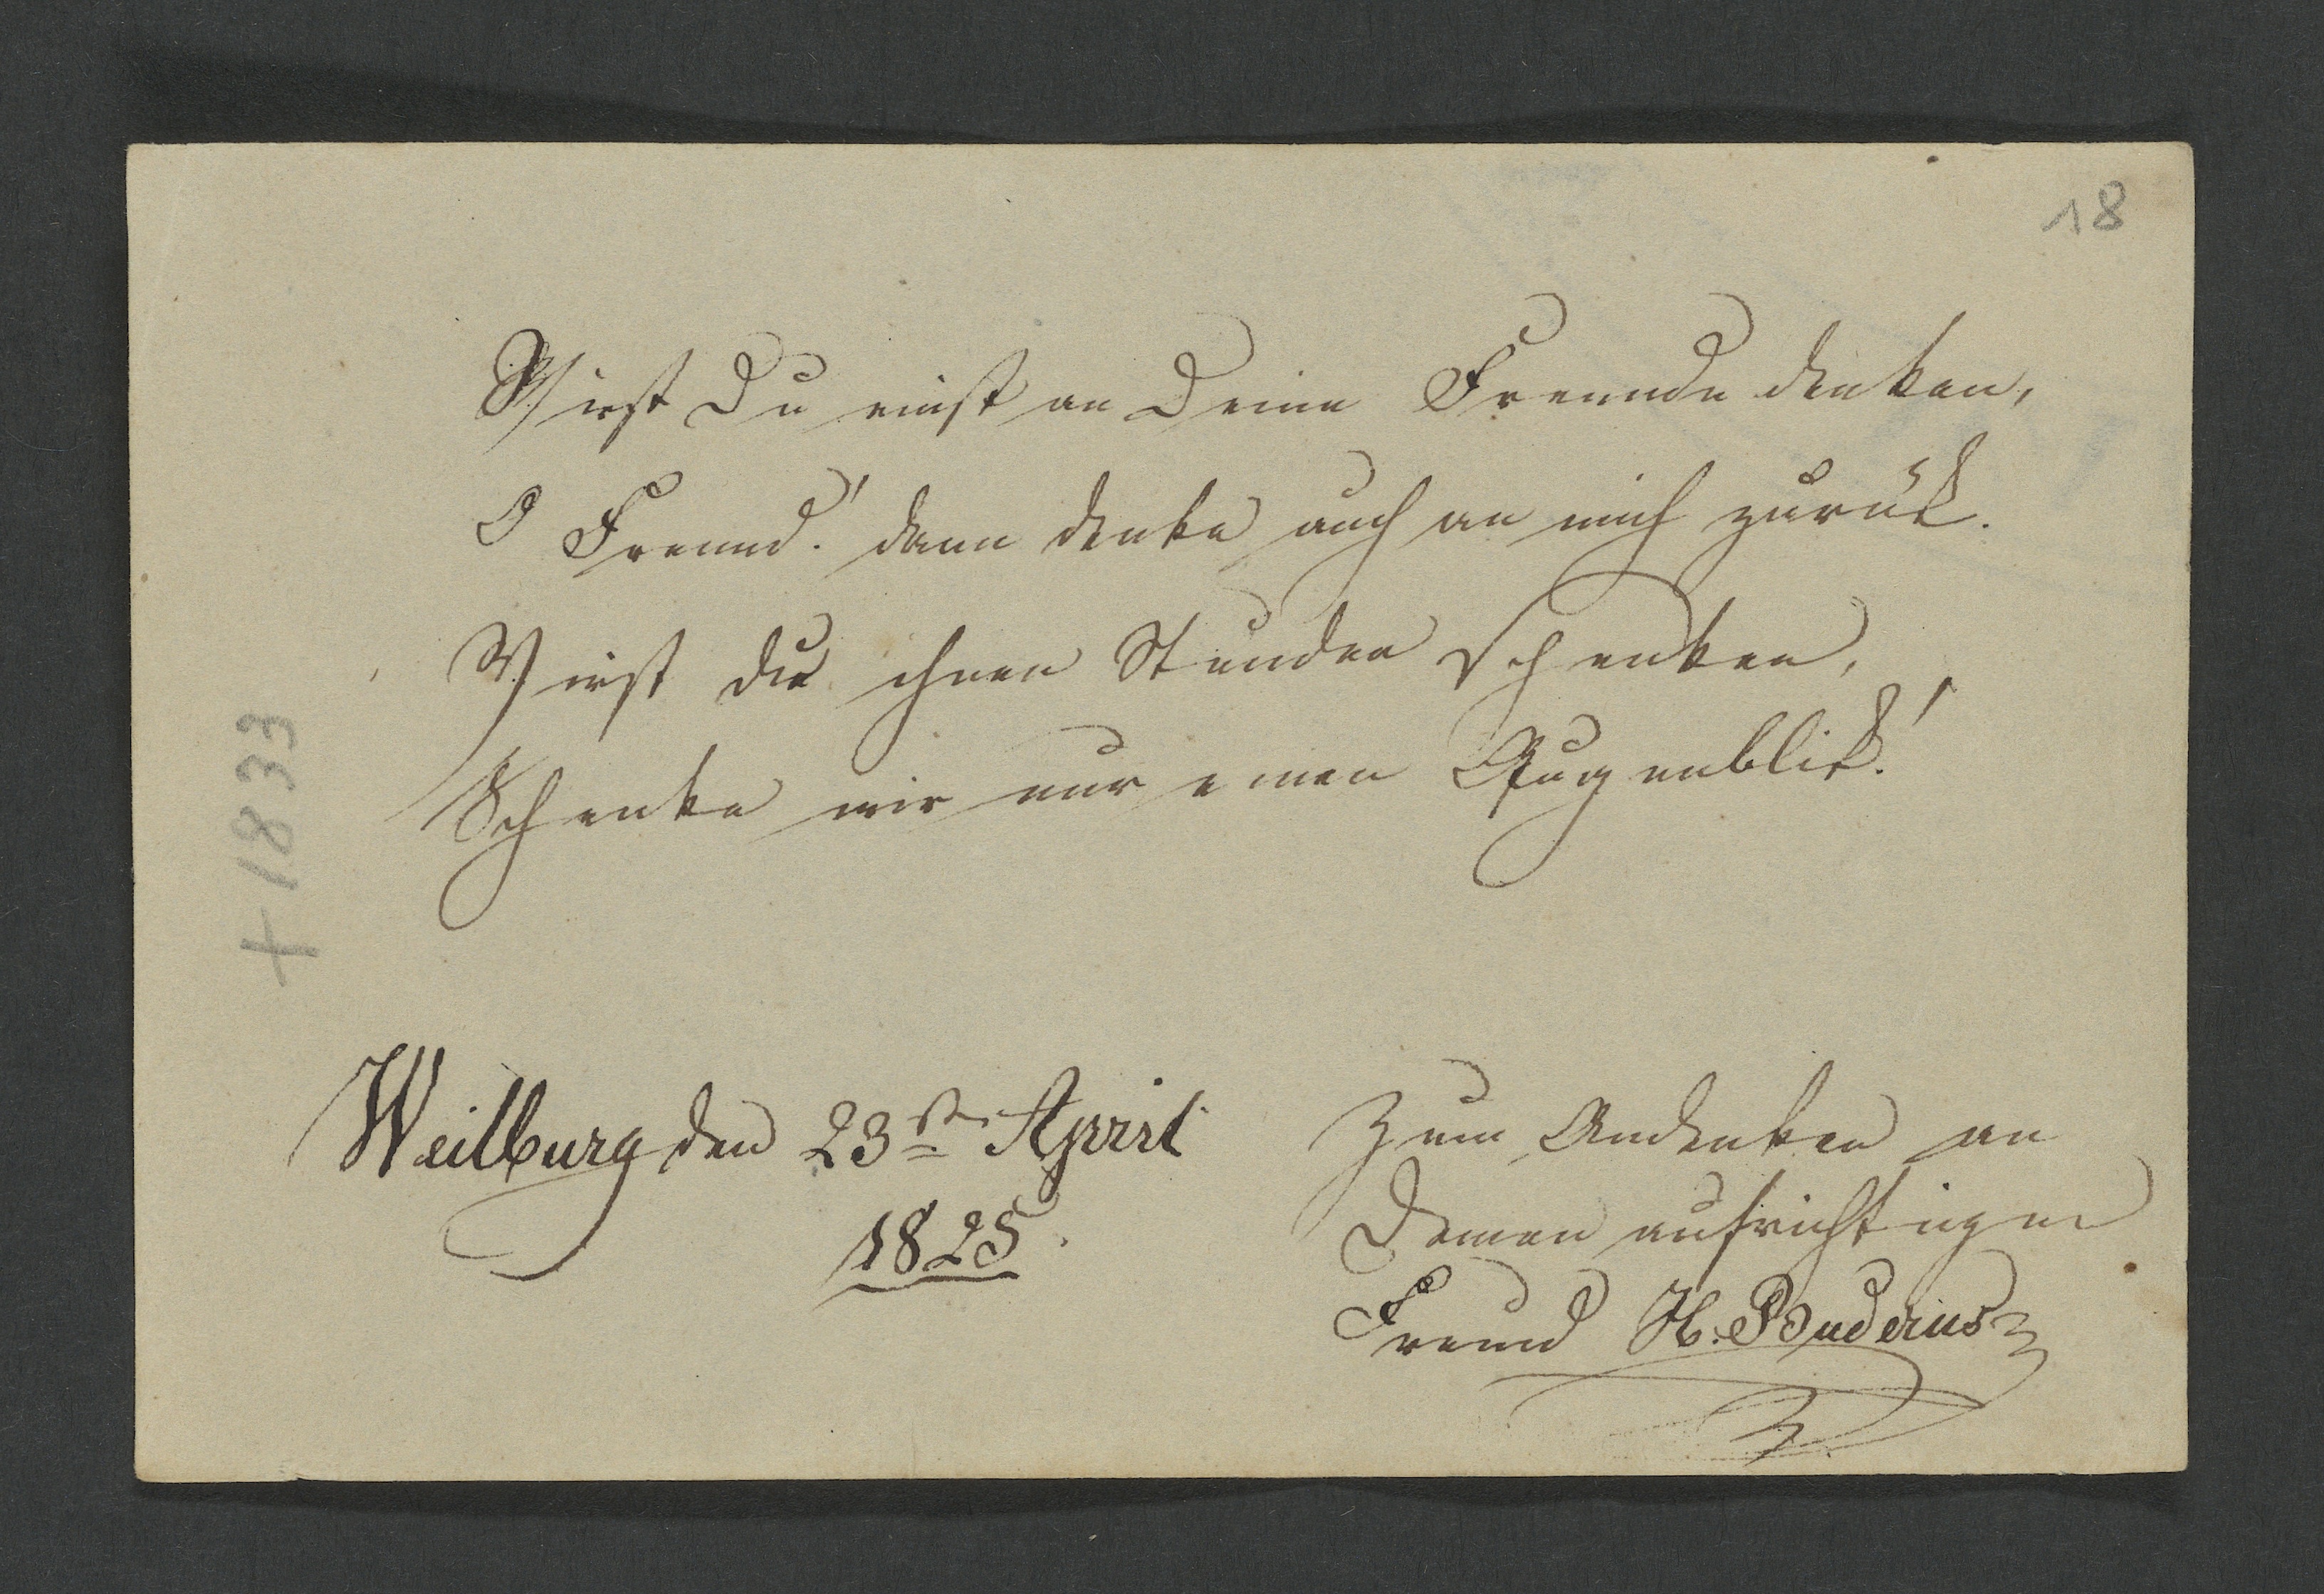 18
Wirst Du einst an Deine Freunde denken,
O Freund! dann denke auch an mich zurük.
Wirst du ihnen Stunden schenken,
Schenke mir nur einen Augenblik!
+ 1833
Weilburg den 23st April
1825.
Zum Andenken an
Deinen aufrichtigen
Freund H. Buderus